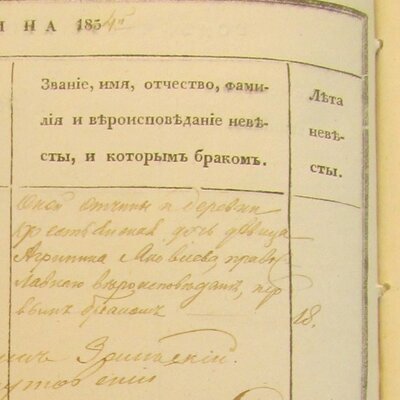 И Н А 1854го
Званіе, имя, отчество, фами-
лія и вѣроисповѣданіе невѣ-
сты, и которымъ бракомъ.
Лѣта
невѣ-
сты.
Оной отчины и деревни
крестьянская дочь дѣвица
Агрипина Яковлева, право
славнаго вѣроисповѣданія, пер
вымъ бракомъ
18.